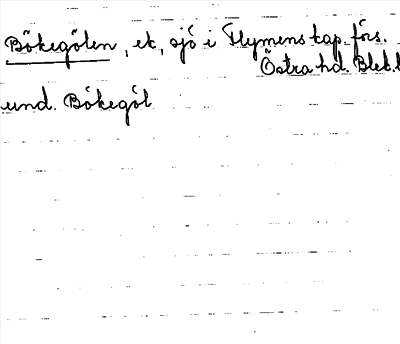 Bökegölen, ek, sjö i Flymens kap. förs.
Östra hd. Blek.l
und. Bökegöl